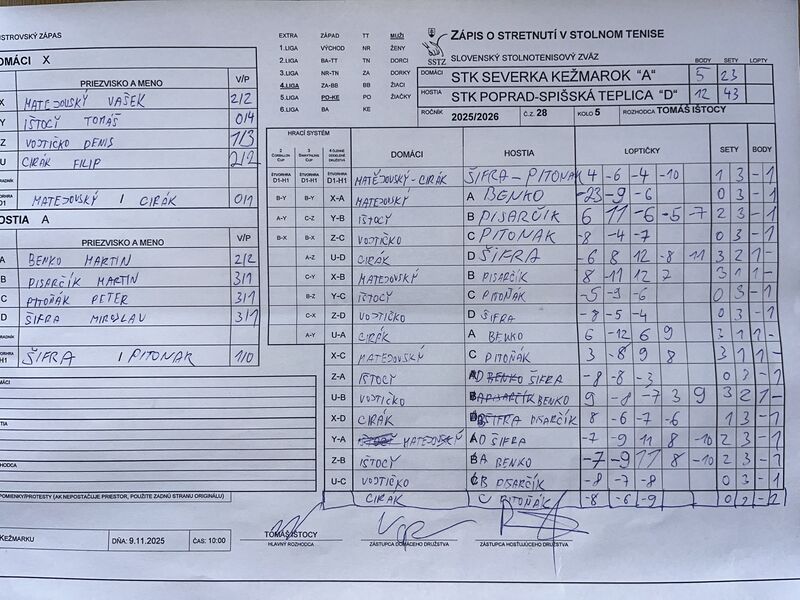 EXTRA ZÁPAD TT MUŽI
1.LIGA VÝCHOD NR ŽENY
2.LIGA BA-TT TN DORCI
3.LIGA NR-TN ZA DORKY
4.LIGA ZA-BB BB ŽIACI
5.LIGA PO-KE PO ŽIAČKY
6.LIGA BA KE
SSTZ
ZÁPIS O STRETNUTÍ V STOLNOM TENISE
SLOVENSKÝ STOLNOTENISOVÝ ZVÄZ
BODY SETY LOPTY
DOMÁCI STK SEVERKA KEŽMAROK "A" 5 23
HOSTIA STK POPRAD-SPIŠSKÁ TEPLICA "D" 12 43
ROČNÍK 2025/2026 Č.Z. 28 KOLO 5 ROZHODCA TOMÁŠ IŠTOCY
ISTROVSKÝ ZÁPAS
DOMÁCI X
PRIEZVISKO A MENO V/P
X MATEJOVSKÝ VAŠEK 2/2
Y IŠTOCY TOMÁŠ 0/4
Z VOJTIČKO DENIS 1/3
U CIRÁK FILIP 2/2
MATEJOVSKÝ / CIRÁK 0/1
HOSTIA A
PRIEZVISKO A MENO V/P
A BENKO MARTIN 2/2
B PISARČÍK MARTIN 3/1
C PITOŇÁK PETER 3/1
D ŠIFRA MIROSLAV 3/1
H1 ŠIFRA / PITONAK 1/0
HRACÍ SYSTÉM DOMÁCI HOSTIA LOPTIČKY SETY BODY
ŠTVORHRA D1-H1 ŠTVORHRA D1-H1 ŠTVORHRA D1-H1 MATEJOVSKÝ-CIRÁK ŠIFRA - PITONAK 4 -6 -4 -10 1 3 - 1
B-Y B-Y X-A MATEJOVSKÝ A BENKO -23 -9 -6 0 3 - 1
A-Y C-Z Y-B IŠTOCY B PISARČÍK 6 11 -6 -5 -7 2 3 - 1
B-X B-X Z-C VOJTIČKO C PITONAK -8 -4 -7 0 3 - 1
A-Z U-D CIRÁK D ŠIFRA -6 8 12 -8 11 3 2 1 -
C-Y X-B MATEJOVSKÝ B PISARČÍK 8 -11 12 7 3 1 1 -
B-Z Y-C IŠTOCY C PITOŇÁK -5 -9 -6 0 3 - 1
C-X Z-D VOJTIČKO D ŠIFRA -8 -5 -4 0 3 - 1
A-Y U-A CIRÁK A BENKO 6 -12 6 9 3 1 1 -
X-C MATEJOVSKÝ C PITOŇÁK 3 -8 9 8 3 1 1 -
Z-A IŠTOCY D BENKO ŠIFRA -8 -8 -3 0 3 - 1
U-B VOJTIČKO PISARČÍK BENKO 9 -8 -7 3 9 3 2 1 -
X-D CIRÁK B ŠIFRA PISARČÍK 8 -6 -7 -6 1 3 - 1
Y-A IŠTOCY MATEJOVSKÝ D ŠIFRA -7 -9 11 8 -10 2 3 - 1
Z-B IŠTOCY A BENKO -7 -9 11 8 -10 2 3 - 1
U-C VOJTIČKO B PISARČÍK -8 -7 -8 0 3 - 1
CIRÁK C PITOŇÁK -8 -6 -9
POMIENKY/PROTESTY (AK NEPOSTAČUJE PRIESTOR, POUŽITE ZADNÚ STRANU ORIGINÁLU)
KEŽMARKU DŇA: 9.11.2025 ČAS: 10:00
TOMÁŠ IŠTOCY
HLAVNÝ ROZHODCA ZÁSTUPCA DOMÁCEHO DRUŽSTVA ZÁSTUPCA HOSŤUJÚCEHO DRUŽSTVA